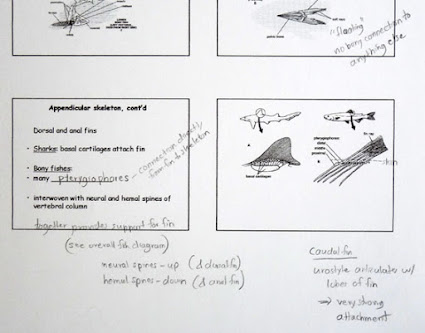 "floating"
no bony connection to
anything else
Appendicular skeleton, cont'd
Dorsal and anal fins
• Sharks: basal cartilages attach fin
• Bony fishes:
• many pterygiophores - connection directly
from fin to skeleton
• interwoven with neural and hemal spines of
vertebral column
together provides support for fin
(see overall fish diagram)
neural spines - up (d dorsal fin)
hemal spines - down (d anal fin)
A
B
pterygiophores:
distal
middle
proximal
fin ray
basal cartilages
Caudal fin
urostyle articulates w/
lobes of fin
⇒ very strong
attachment